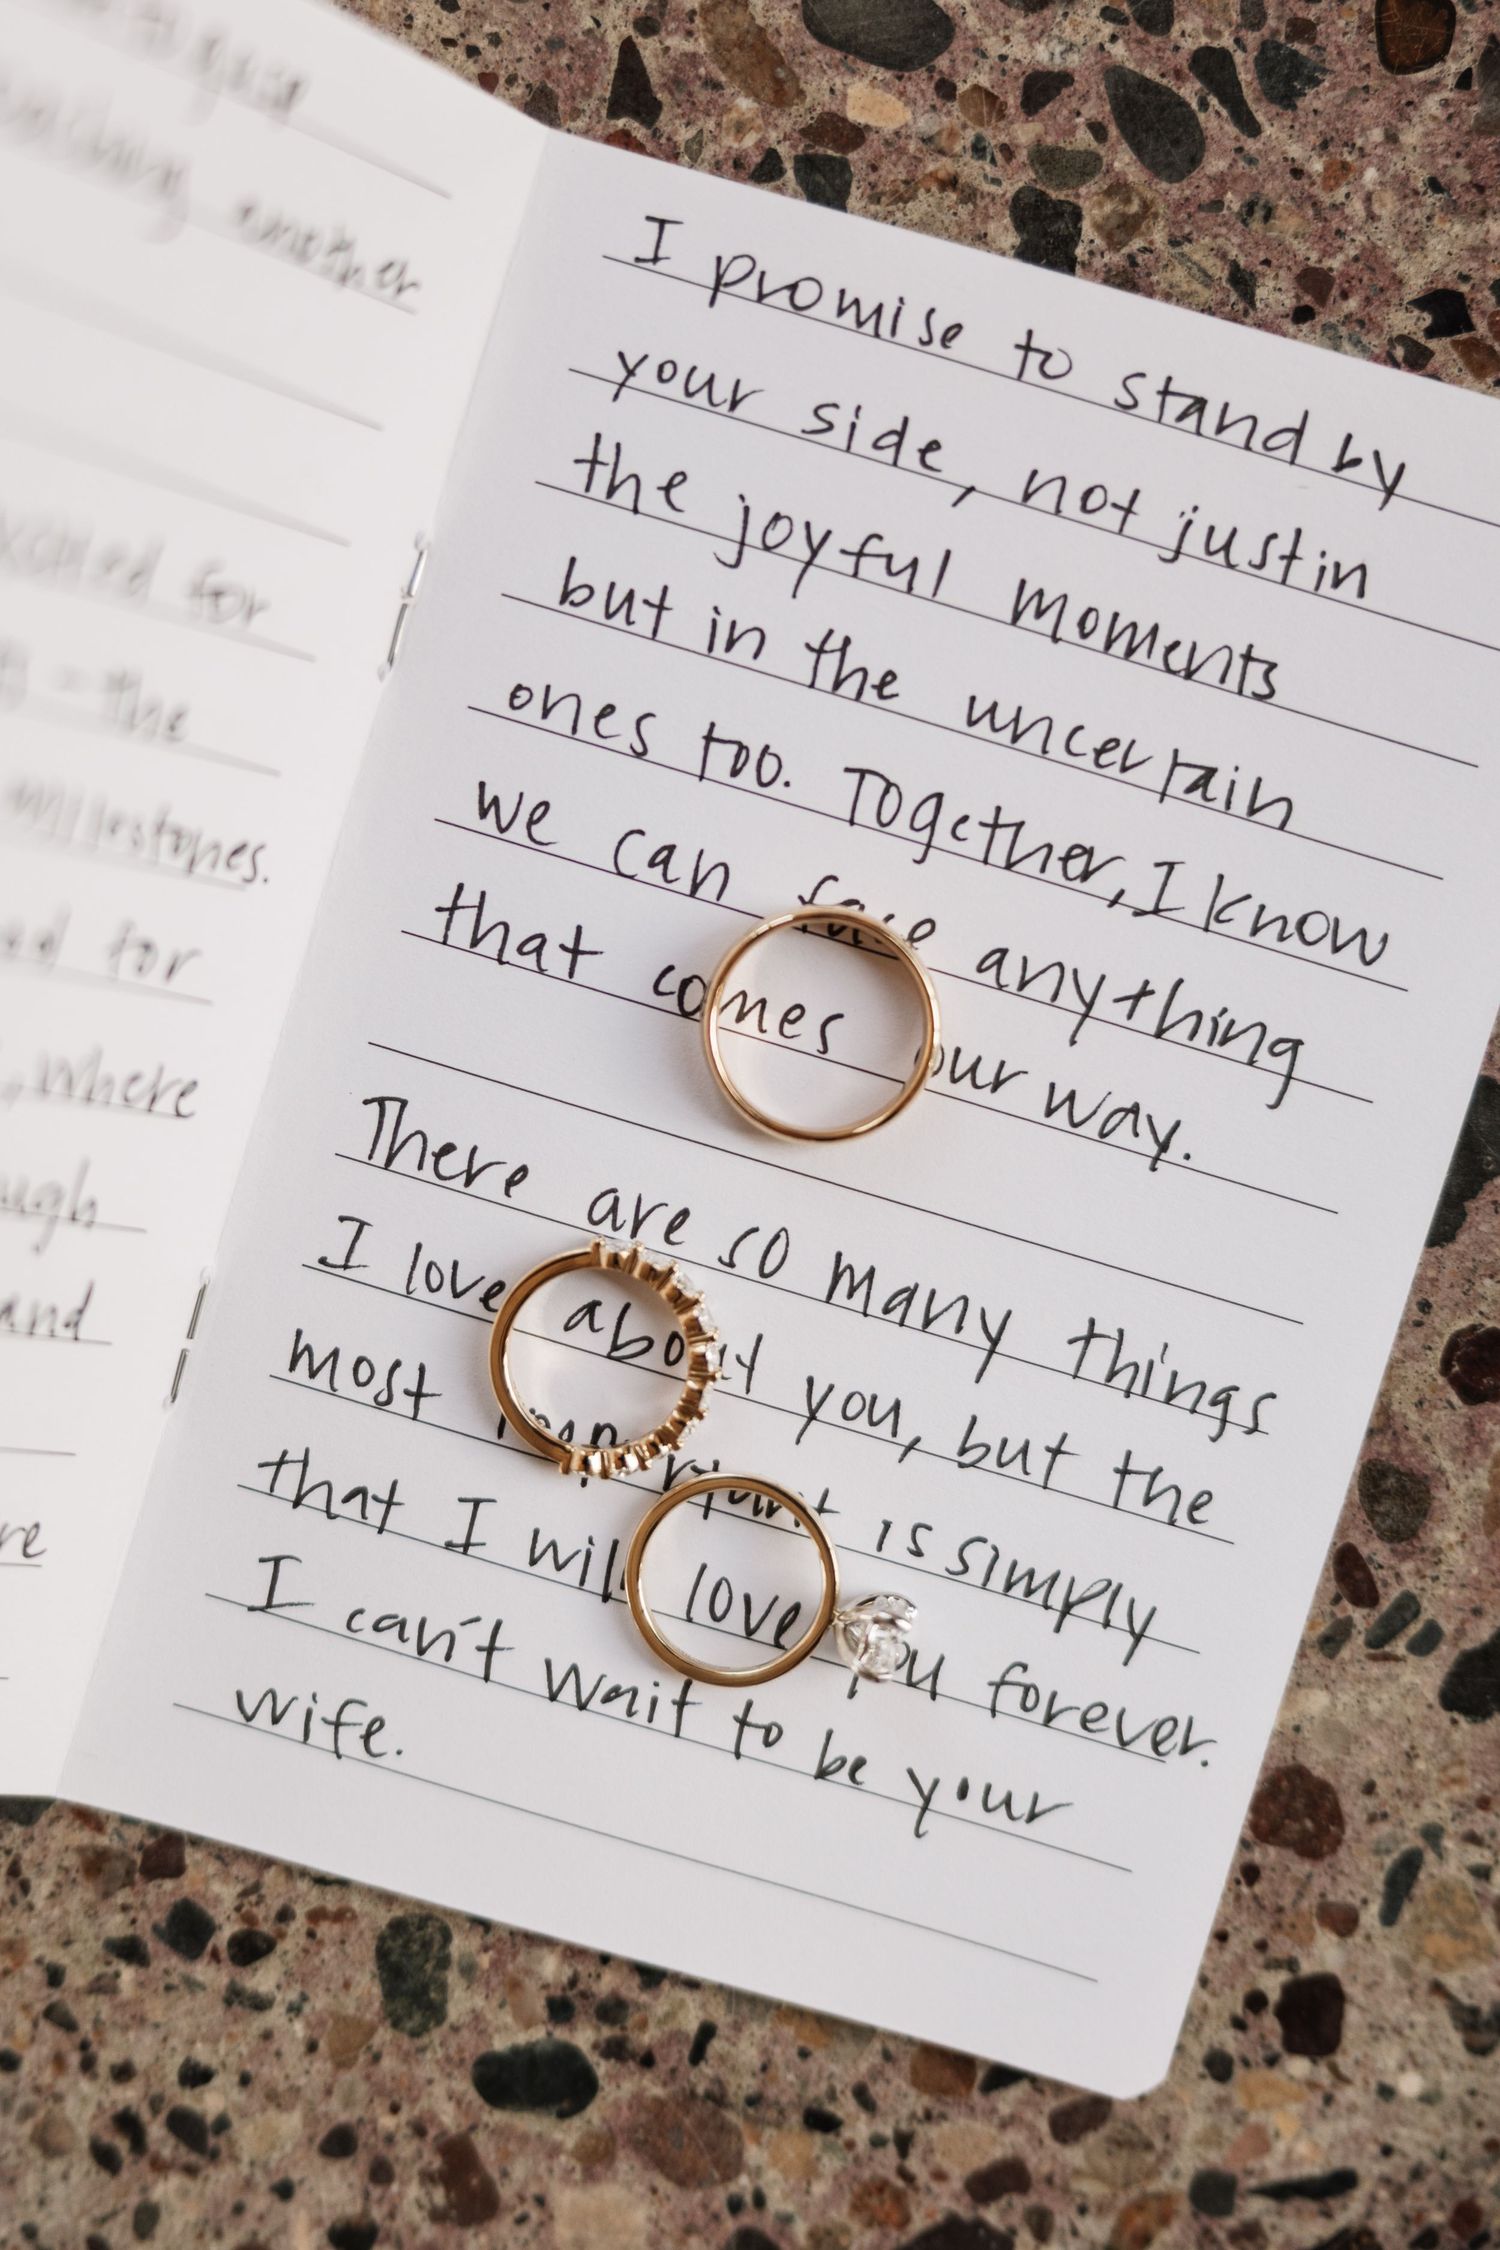 guise
another
for
- the
milestones.
for
, where
and
I promise to stand by
your side, not just in
the joyful moments
but in the uncertain
ones too. Together, I know
we can face anything
that comes our way.
There are so many things
I love about you, but the
most important is simply
that I will love you forever.
I can't wait to be your
wife.